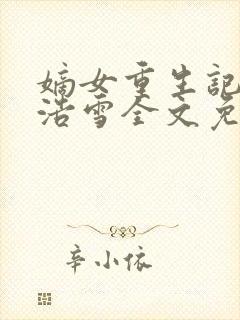 嫡女重生記
浩雪全文免
辛小依